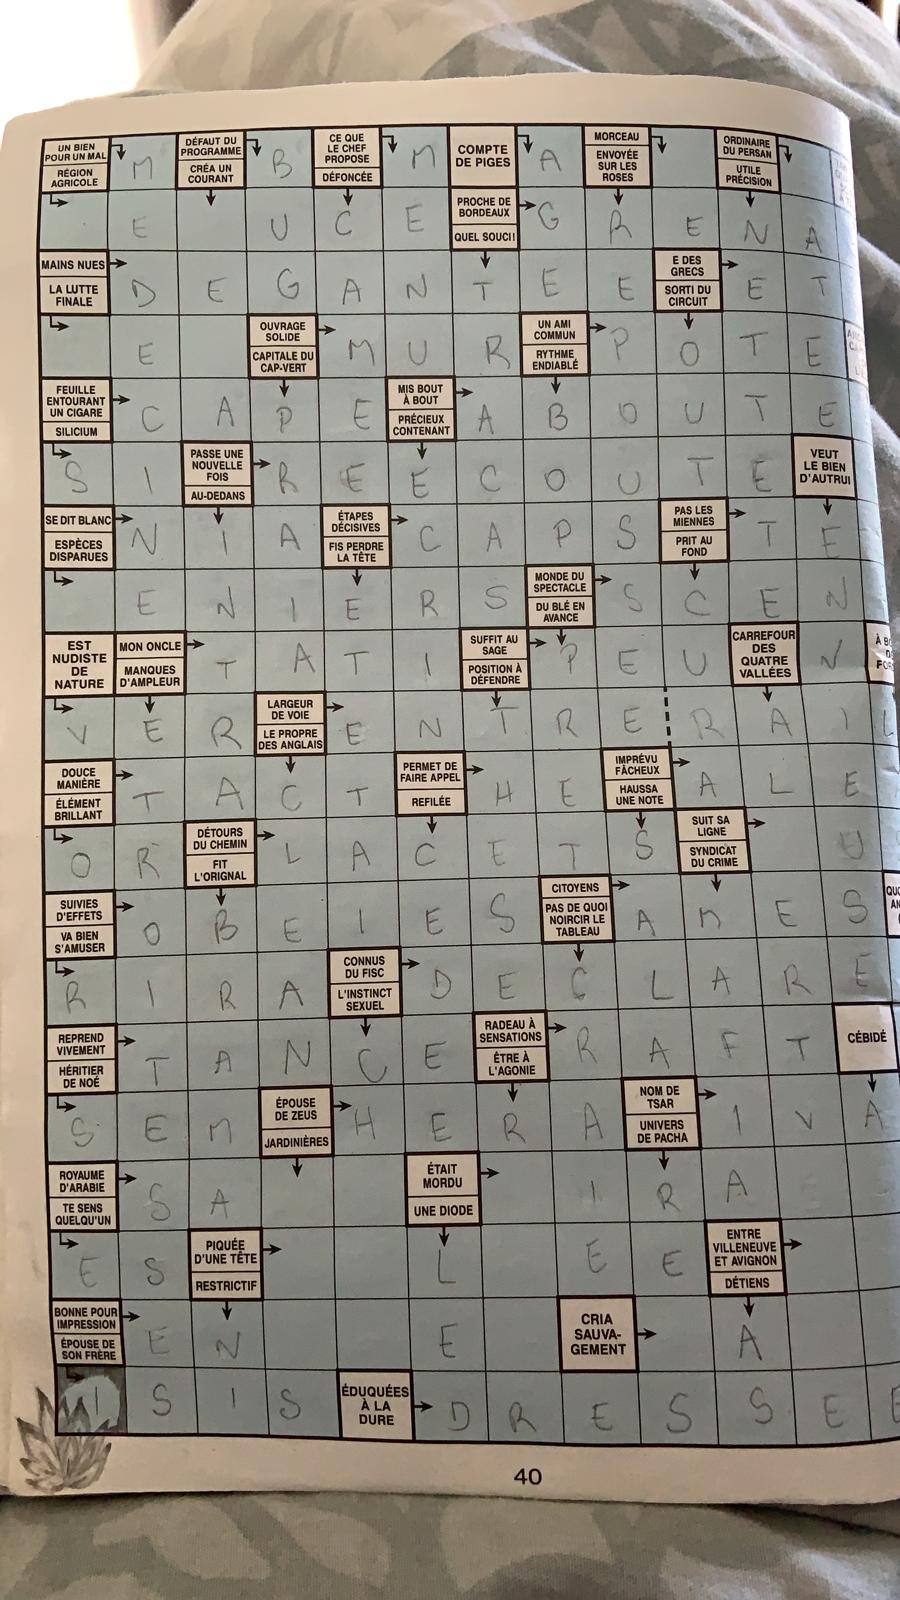 UN BIEN POUR UN MAL
RÉGION AGRICOLE
M
DÉFAUT DU PROGRAMME
CRÉA UN COURANT
B
CE QUE LE CHEF PROPOSE
DÉFONCÉE
M
COMPTE DE PIGES
A
MORCEAU
ENVOYÉE SUR LES ROSES
ORDINAIRE DU PERSAN
UTILE PRÉCISION
E U C E
PROCHE DE BORDEAUX
QUEL SOUCI!
G R E N A
MAINS NUES
LA LUTTE FINALE
D E G A N T E E
E DES GRECS
SORTI DU CIRCUIT
E T
E
OUVRAGE SOLIDE
CAPITALE DU CAP-VERT
M U R
UN AMI COMMUN
RYTHME ENDIABLÉ
P O T E
FEUILLE ENTOURANT UN CIGARE
SILICIUM
C A P E
MIS BOUT À BOUT
PRÉCIEUX CONTENANT
A B O U T E
S I
PASSE UNE NOUVELLE FOIS
AU-DEDANS
R E E C O U T E
VEUT LE BIEN D'AUTRUI
SE DIT BLANC
ESPÈCES DISPARUES
N I A
ÉTAPES DÉCISIVES
FIS PERDRE LA TÊTE
C A P S
PAS LES MIENNES
PRIT AU FOND
T E
E N I E R S
MONDE DU SPECTACLE
DU BLÉ EN AVANCE
S C E N
EST NUDISTE DE NATURE
MON ONCLE
MANQUES D'AMPLEUR
T A T I
SUFFIT AU SAGE
POSITION À DÉFENDRE
P E U
CARREFOUR DES QUATRE VALLÉES
N
V E R
LARGEUR DE VOIE
LE PROPRE DES ANGLAIS
E N T R E R A I L
DOUCE MANIÈRE
ÉLÉMENT BRILLANT
T A C T
PERMET DE FAIRE APPEL
REFILÉE
H E
IMPRÉVU FÂCHEUX
HAUSSA UNE NOTE
A L E
O R
DÉTOURS DU CHEMIN
FIT L'ORIGNAL
L A C E T S
SUIT SA LIGNE
SYNDICAT DU CRIME
U
SUIVIES D'EFFETS
VA BIEN S'AMUSER
O B E I E S
CITOYENS
PAS DE QUOI NOIRCIR LE TABLEAU
A M E S
R I R A
CONNUS DU FISC
L'INSTINCT SEXUEL
D E C L A R E
REPREND VIVEMENT
HÉRITIER DE NOÉ
T A N C E
RADEAU À SENSATIONS
ÊTRE À L'AGONIE
R A F T
CÉBIDÉ
S E M
ÉPOUSE DE ZEUS
JARDINIÈRES
H E R A
NOM DE TSAR
UNIVERS DE PACHA
I V A
ROYAUME D'ARABIE
TE SENS QUELQU'UN
S A
ÉTAIT MORDU
UNE DIODE
I R A
E S
PIQUÉE D'UNE TÊTE
RESTRICTIF
L E E
ENTRE VILLENEUVE ET AVIGNON
DÉTIENS
BONNE POUR IMPRESSION
ÉPOUSE DE SON FRÈRE
E N E
CRIA SAUVA-GEMENT
A
I S I S
ÉDUQUÉES À LA DURE
D R E S S E E
40